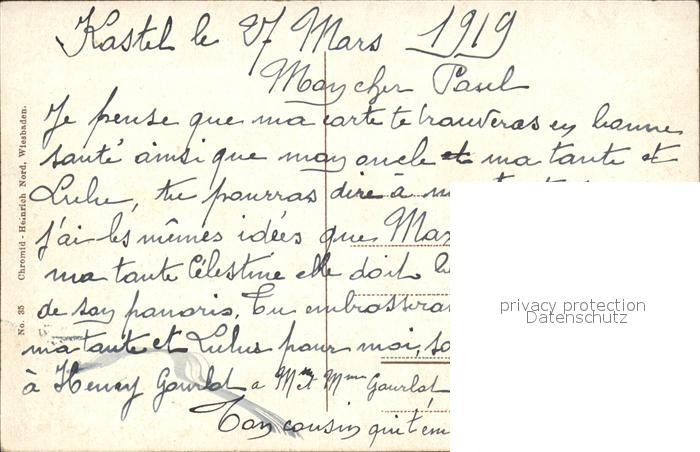 Kastel le 27 Mars 1919
Mon cher Paul
Je pense que ma carte te trouveras en bonne
santé ainsi que mon oncle et ma tante et
Lulu, tu pourras dire à
j'ai les mêmes idées que
ma tante Célestine elle doit
de son panaris. Tu embrasseras
ma tante et Lulus pour moi,
à Henry Gourlot a Mr et Mme Gourlot
Ton cousin qui t'em
No. 35 Chromid-Heinrich Nord, Wiesbaden.
privacy protection
Datenschutz